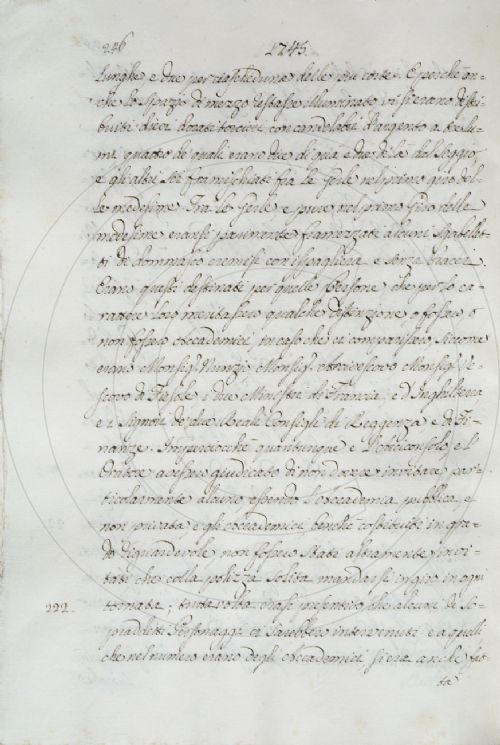 246
1745.
lunghe e due per ciascheduna delle più corte. E perchè an-
che lo spazio di mezzo restasse illuminato vi si erano distri-
buiti dieci dorati torcieri con candelabri d'argento a tre lu-
mi quattro de quali erano due di qua e due di là dal seggio,
e gli altri sei framischiati fra le sedie nel primo giro del-
le medesime. Tra le sedie e pure nel primo giro delle
medesime eransi parimente framezzati alcuni sgabellet-
ti di dommasco cremesi con ispagliera e senza braccia.
Erano questi destinati per quelle Persone che per lo ca-
rattere loro meritassero qualche distinzione o fossero o
non fossero Accademici in caso che ci comparissero, siccome
erano Monsig.r Nunzio Monsig.r Arcivescovo Monsig.r Ve-
scovo di Fiesole i due Ministri di Francia, e d'Inghilterra
e i Signori de' due Reali Consigli di Reggenza e di Fi-
nanze. Imperciocchè quantunque e l'Arciconsolo e l
Oratore avessero giudicato di non dovere invitare par-
ticolarmente alcuno essendo l'Accademia pubblica, e
non privata, e gli Accademici, benchè costituiti in gra-
do riguardevole non fossero stati altramente invi-
tati che colla polizza solita mandarsi in giro in ogni
222.
tornata, tutta volta erasi presentito, che alcuni de' So-
praddetti Personaggi ci sarebbero intervenuti e a quelli
che nel numero erano degli Accademici, si era anche fat-
ta